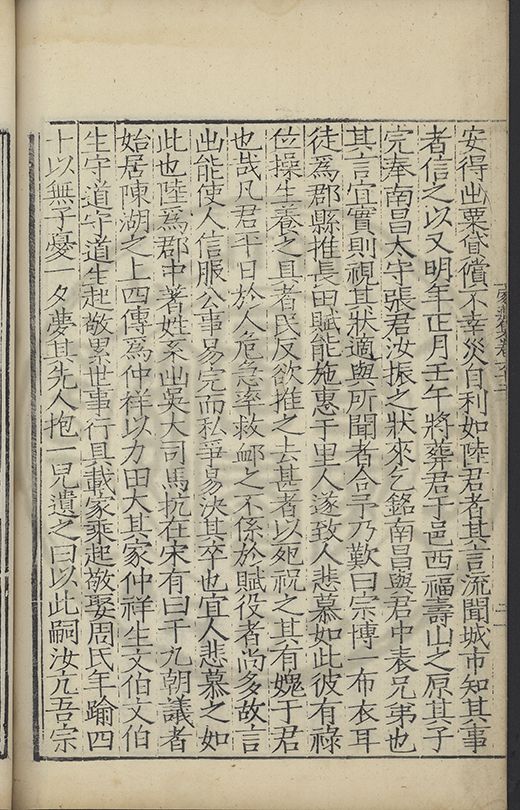 安得出粟眘償不幸災自利如陸君者其言流聞城市知其事
者信之以又明年正月壬午將葬君于邑西福壽山之原其子
完奉南昌太守張君汝振之狀來乞銘南昌與君中表兄弟也
其言宜實則視其狀適與所聞者合予乃歎曰宗博一布衣耳
徒爲郡縣推長田賦能施惠于里人遂致人悲慕如此彼有祿
位操生養之具者民反欲推之去甚者以死祝之其有媿于君
也哉凡君平日於人危急率救䘏之不係於賦役者尚多故言
出能使人信服公事易完而私爭易決其卒也宜人悲慕之如
此也陸爲郡中著姓系出吳大司馬抗在宋有曰千九朝議者
始居陳湖之上四傳爲仲祥以力田大其家仲祥生文伯文伯
生守道守道生起敬累世事行具載家乘起敬娶周氏年踰四
十以無子憂一夕夢其先人抱一兒遺之曰以此嗣汝亢吾宗